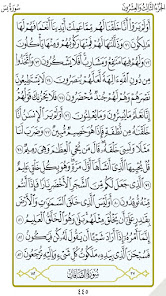 الجزء الثالث والعشرون سورة يس
أَوَلَمْ يَرَوْا أَنَّا خَلَقْنَا لَهُم مِّمَّا عَمِلَتْ أَيْدِينَا أَنْعَامًا فَهُمْ لَهَا
مَالِكُونَ ٧١ وَذَلَّلْنَاهَا لَهُمْ فَمِنْهَا رَكُوبُهُمْ وَمِنْهَا يَأْكُلُونَ
٧٢ وَلَهُمْ فِيهَا مَنَافِعُ وَمَشَارِبُ أَفَلَا يَشْكُرُونَ ٧٣ وَاتَّخَذُوا
مِن دُونِ اللَّهِ آلِهَةً لَّعَلَّهُمْ يُنصَرُونَ ٧٤ لَا يَسْتَطِيعُونَ
نَصْرَهُمْ وَهُمْ لَهُمْ جُندٌ مُّحْضَرُونَ ٧٥ فَلَا يَحْزُنكَ قَوْلُهُمْ
إِنَّا نَعْلَمُ مَا يُسِرُّونَ وَمَا يُعْلِنُونَ ٧٦ أَوَلَمْ يَرَ الْإِنسَانُ
أَنَّا خَلَقْنَاهُ مِن نُّطْفَةٍ فَإِذَا هُوَ خَصِيمٌ مُّبِينٌ ٧٧ وَضَرَبَ لَنَا
مَثَلًا وَنَسِيَ خَلْقَهُ قَالَ مَن يُحْيِي الْعِظَامَ وَهِيَ رَمِيمٌ ٧٨
قُلْ يُحْيِيهَا الَّذِي أَنشَأَهَا أَوَّلَ مَرَّةٍ وَهُوَ بِكُلِّ خَلْقٍ عَلِيمٌ
٧٩ الَّذِي جَعَلَ لَكُم مِّنَ الشَّجَرِ الْأَخْضَرِ نَارًا فَإِذَا أَنتُم مِّنْهُ تُوقِدُونَ
٨٠ أَوَلَيْسَ الَّذِي خَلَقَ السَّمَاوَاتِ وَالْأَرْضَ بِقَادِرٍ عَلَىٰ أَن
يَخْلُقَ مِثْلَهُم بَلَىٰ وَهُوَ الْخَلَّاقُ الْعَلِيمُ ٨١ إِنَّمَا أَمْرُهُ
إِذَا أَرَادَ شَيْئًا أَن يَقُولَ لَهُ كُن فَيَكُونُ ٨٢ فَسُبْحَانَ
الَّذِي بِيَدِهِ مَلَكُوتُ كُلِّ شَيْءٍ وَإِلَيْهِ تُرْجَعُونَ ٨٣
سورة الصافات
٤٤٥